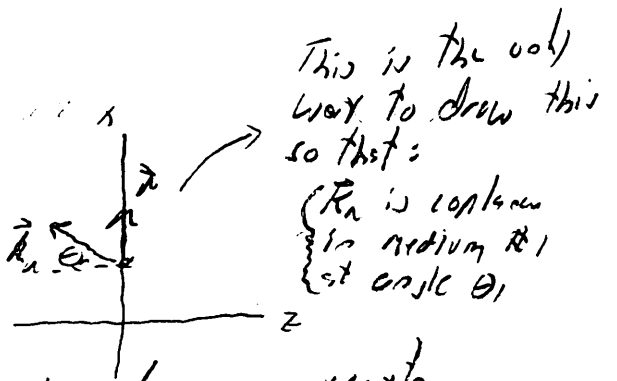 This is the only
way to draw this
so that:
is coplanar
in medium #1
at angle θ1
x
z